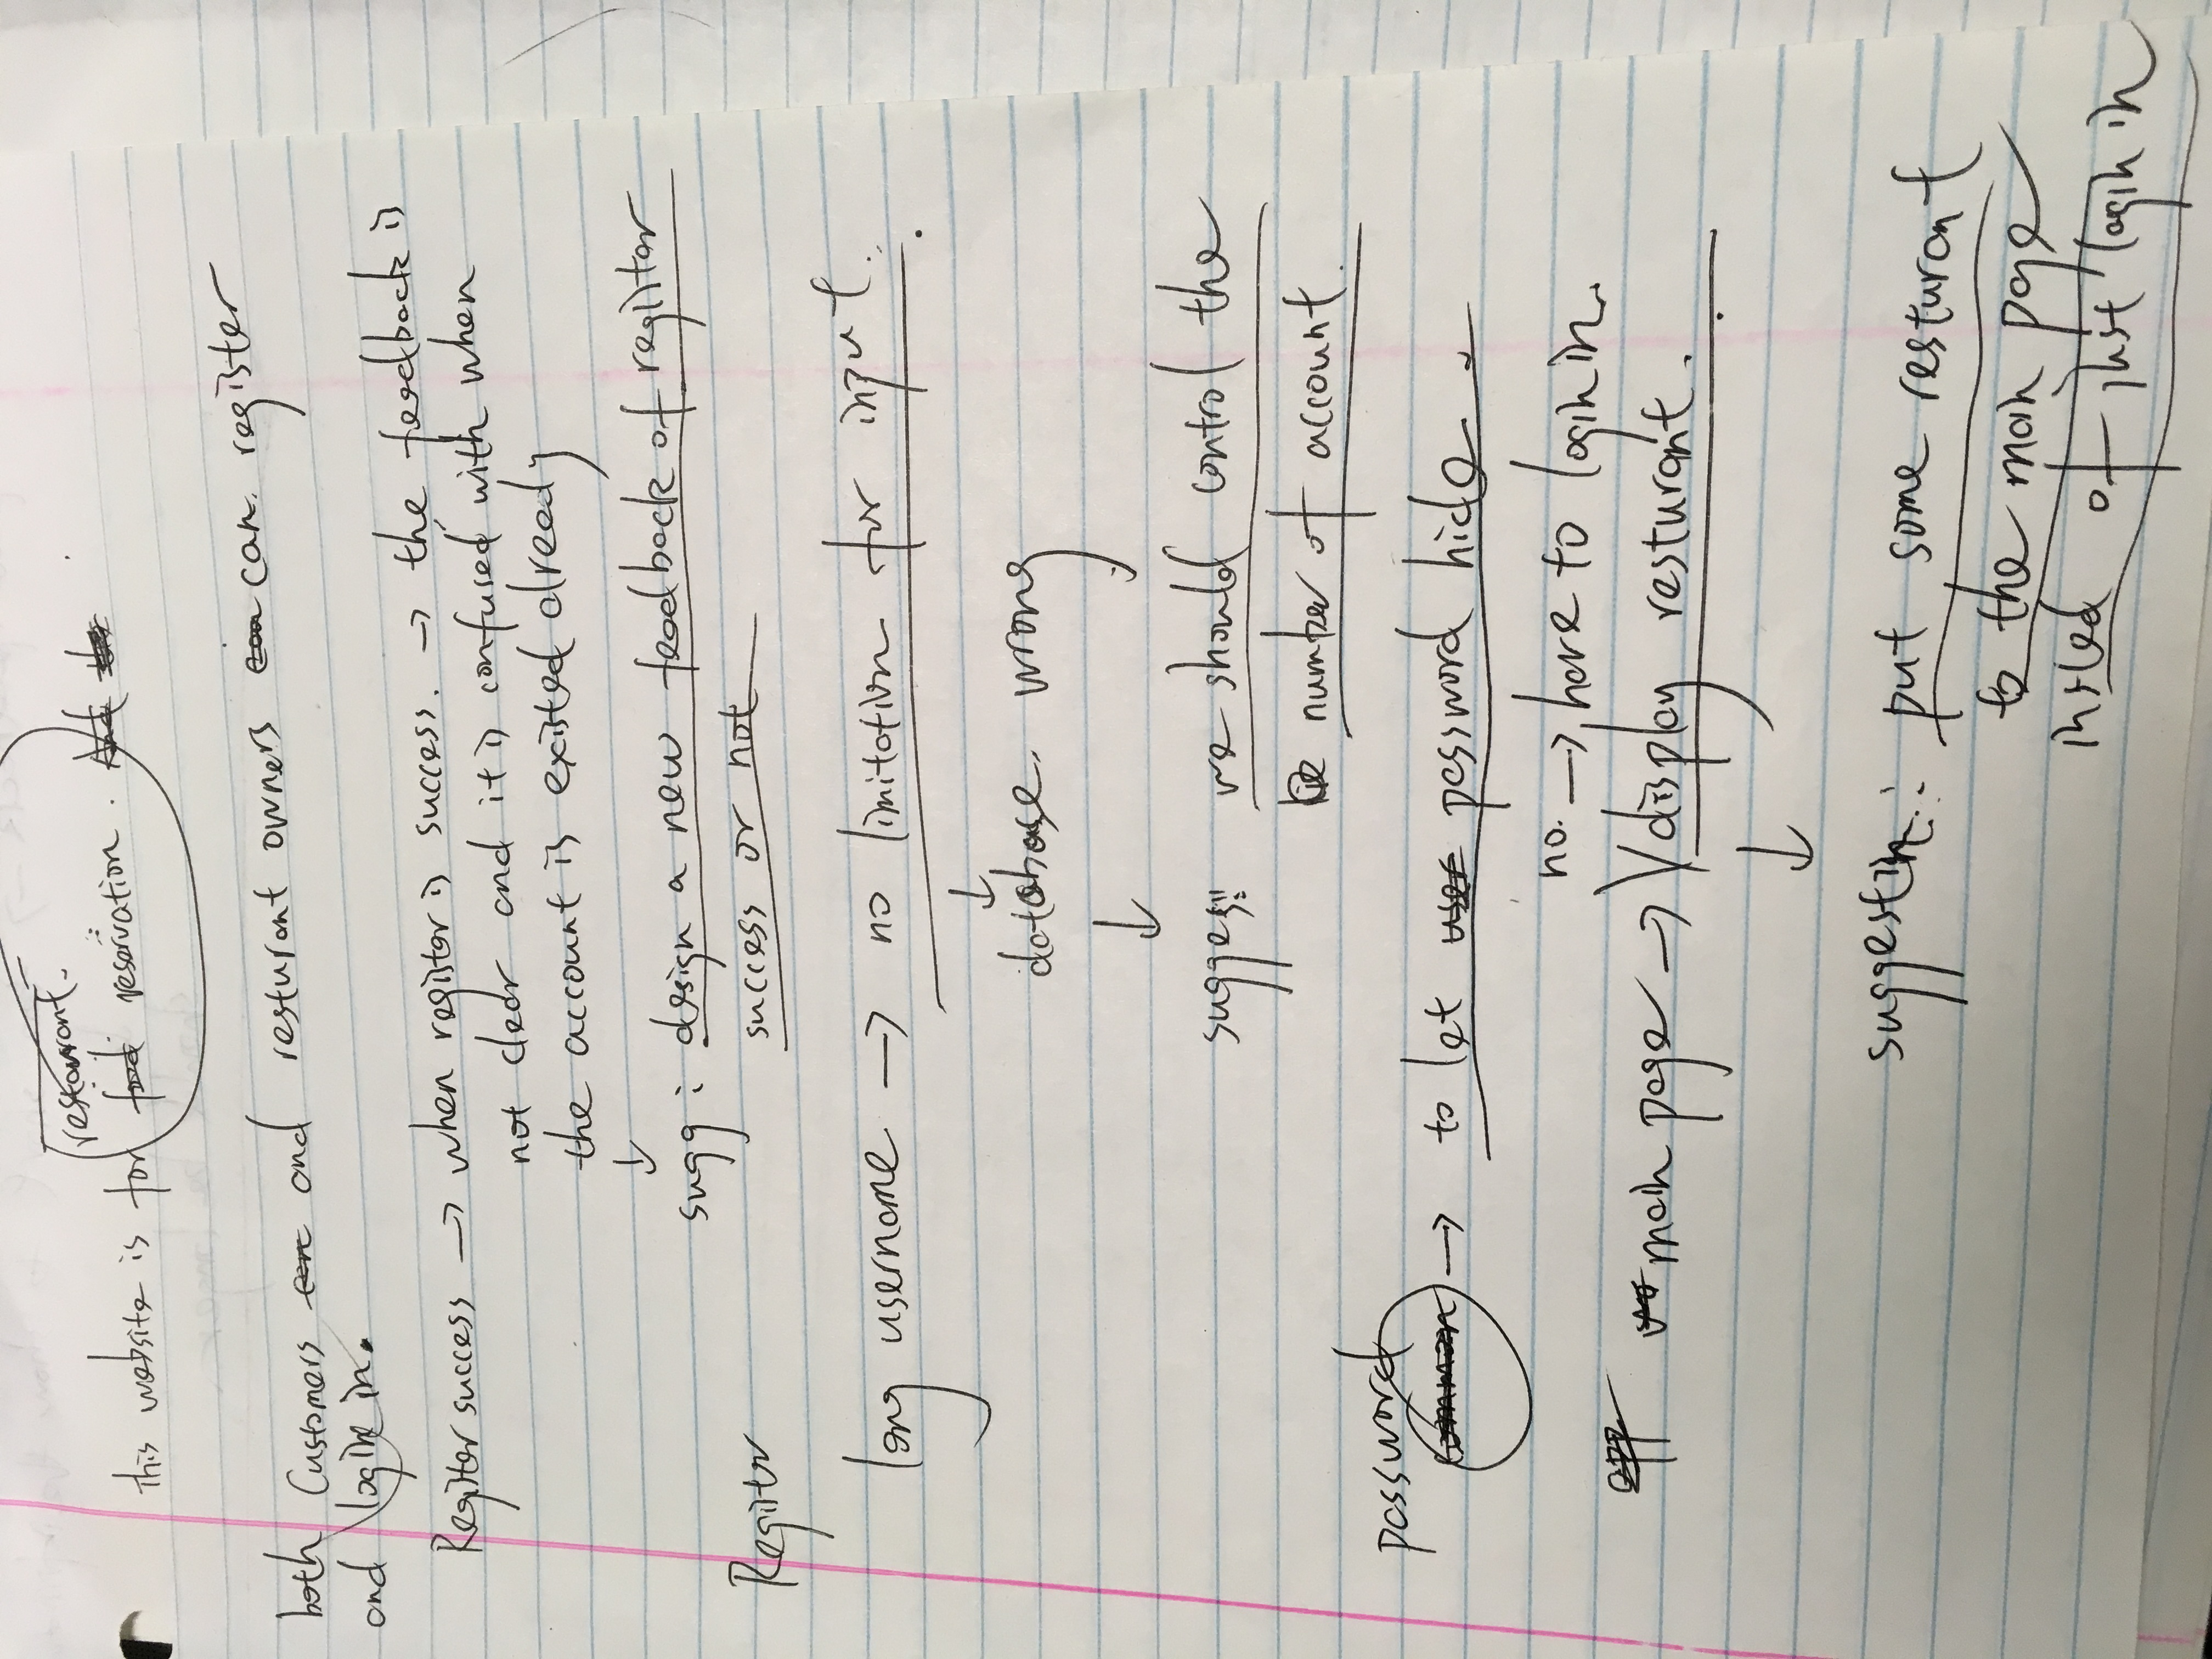 restaurant.
this website is for food reservation. And the
both Customers can and resturant owners can can. register
and login in.
Register success → when register is success. → the feedback is
not clear and it is confused with when
the account is existed already
↓
sugg: design a new feedback of register
success or not
Register
long username → no limitation for input.
↓
database. wrong
↓
sugges: we should control the
number of account.
password
common → to let user password hide
no. → have to login in.
app main page → display resturant.
↓
suggestin: put some resturant
to the main page
insted of just login in